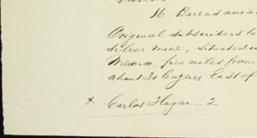 16 Barras avia
Original subscribers to
Silver mine, situated in
Mexico, five miles from
about 30 leagues East of
x Carlos Hagan — 2